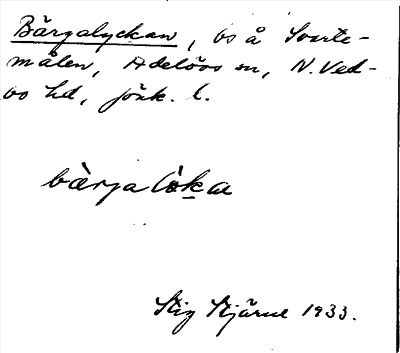 Bärgalyckan, os å Svarte-
målen, Adelövs sn, N. Ved-
bo hd, Jönk. l.
bàrjalöka
Stig Stjärne 1933.